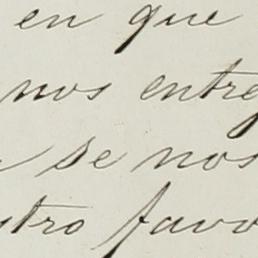 en que
nos entre
se nos
stro favo